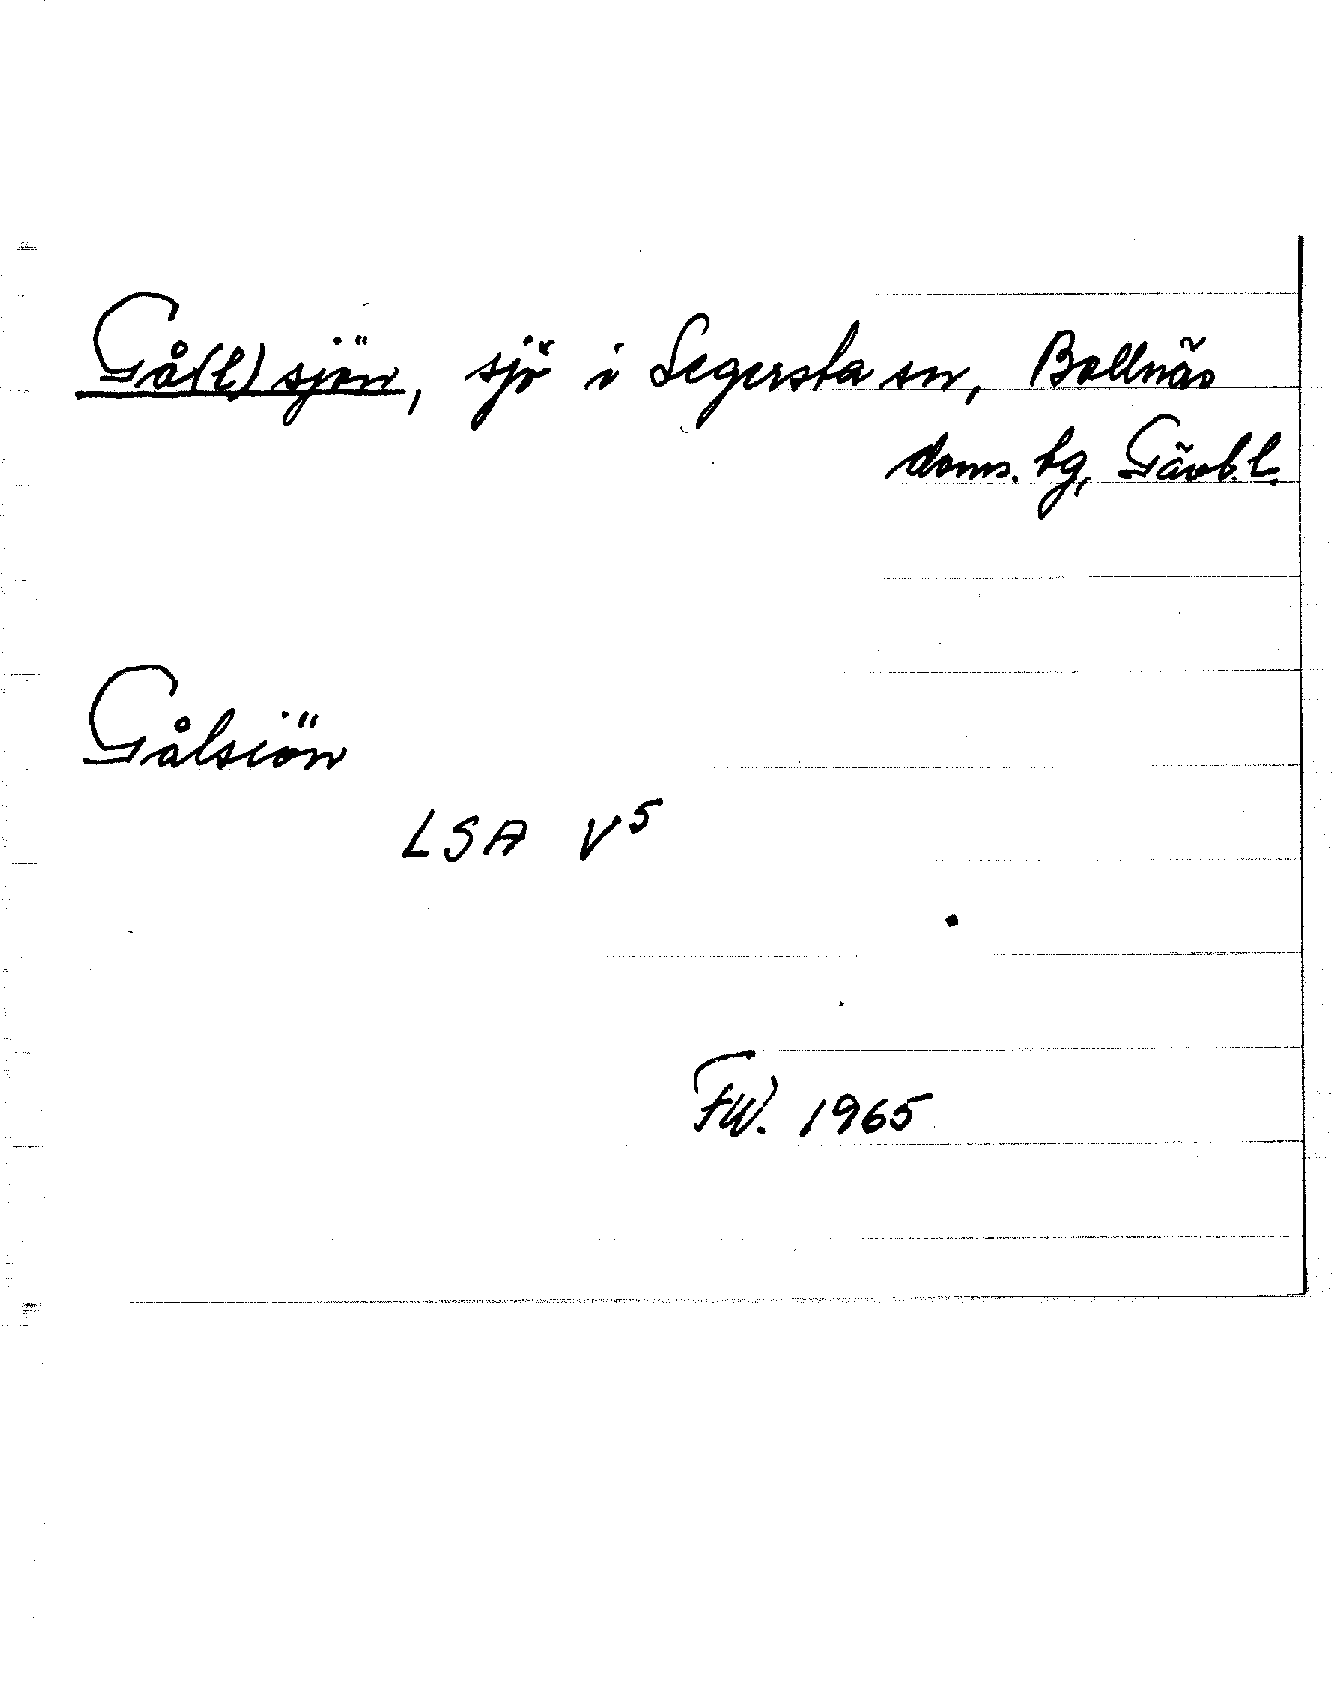 Gå(l)sjön, sjö i Segersta sn, Bollnäs
doms. tg, Gävb. l.
Gålsiön
LSA V⁵
FW. 1965